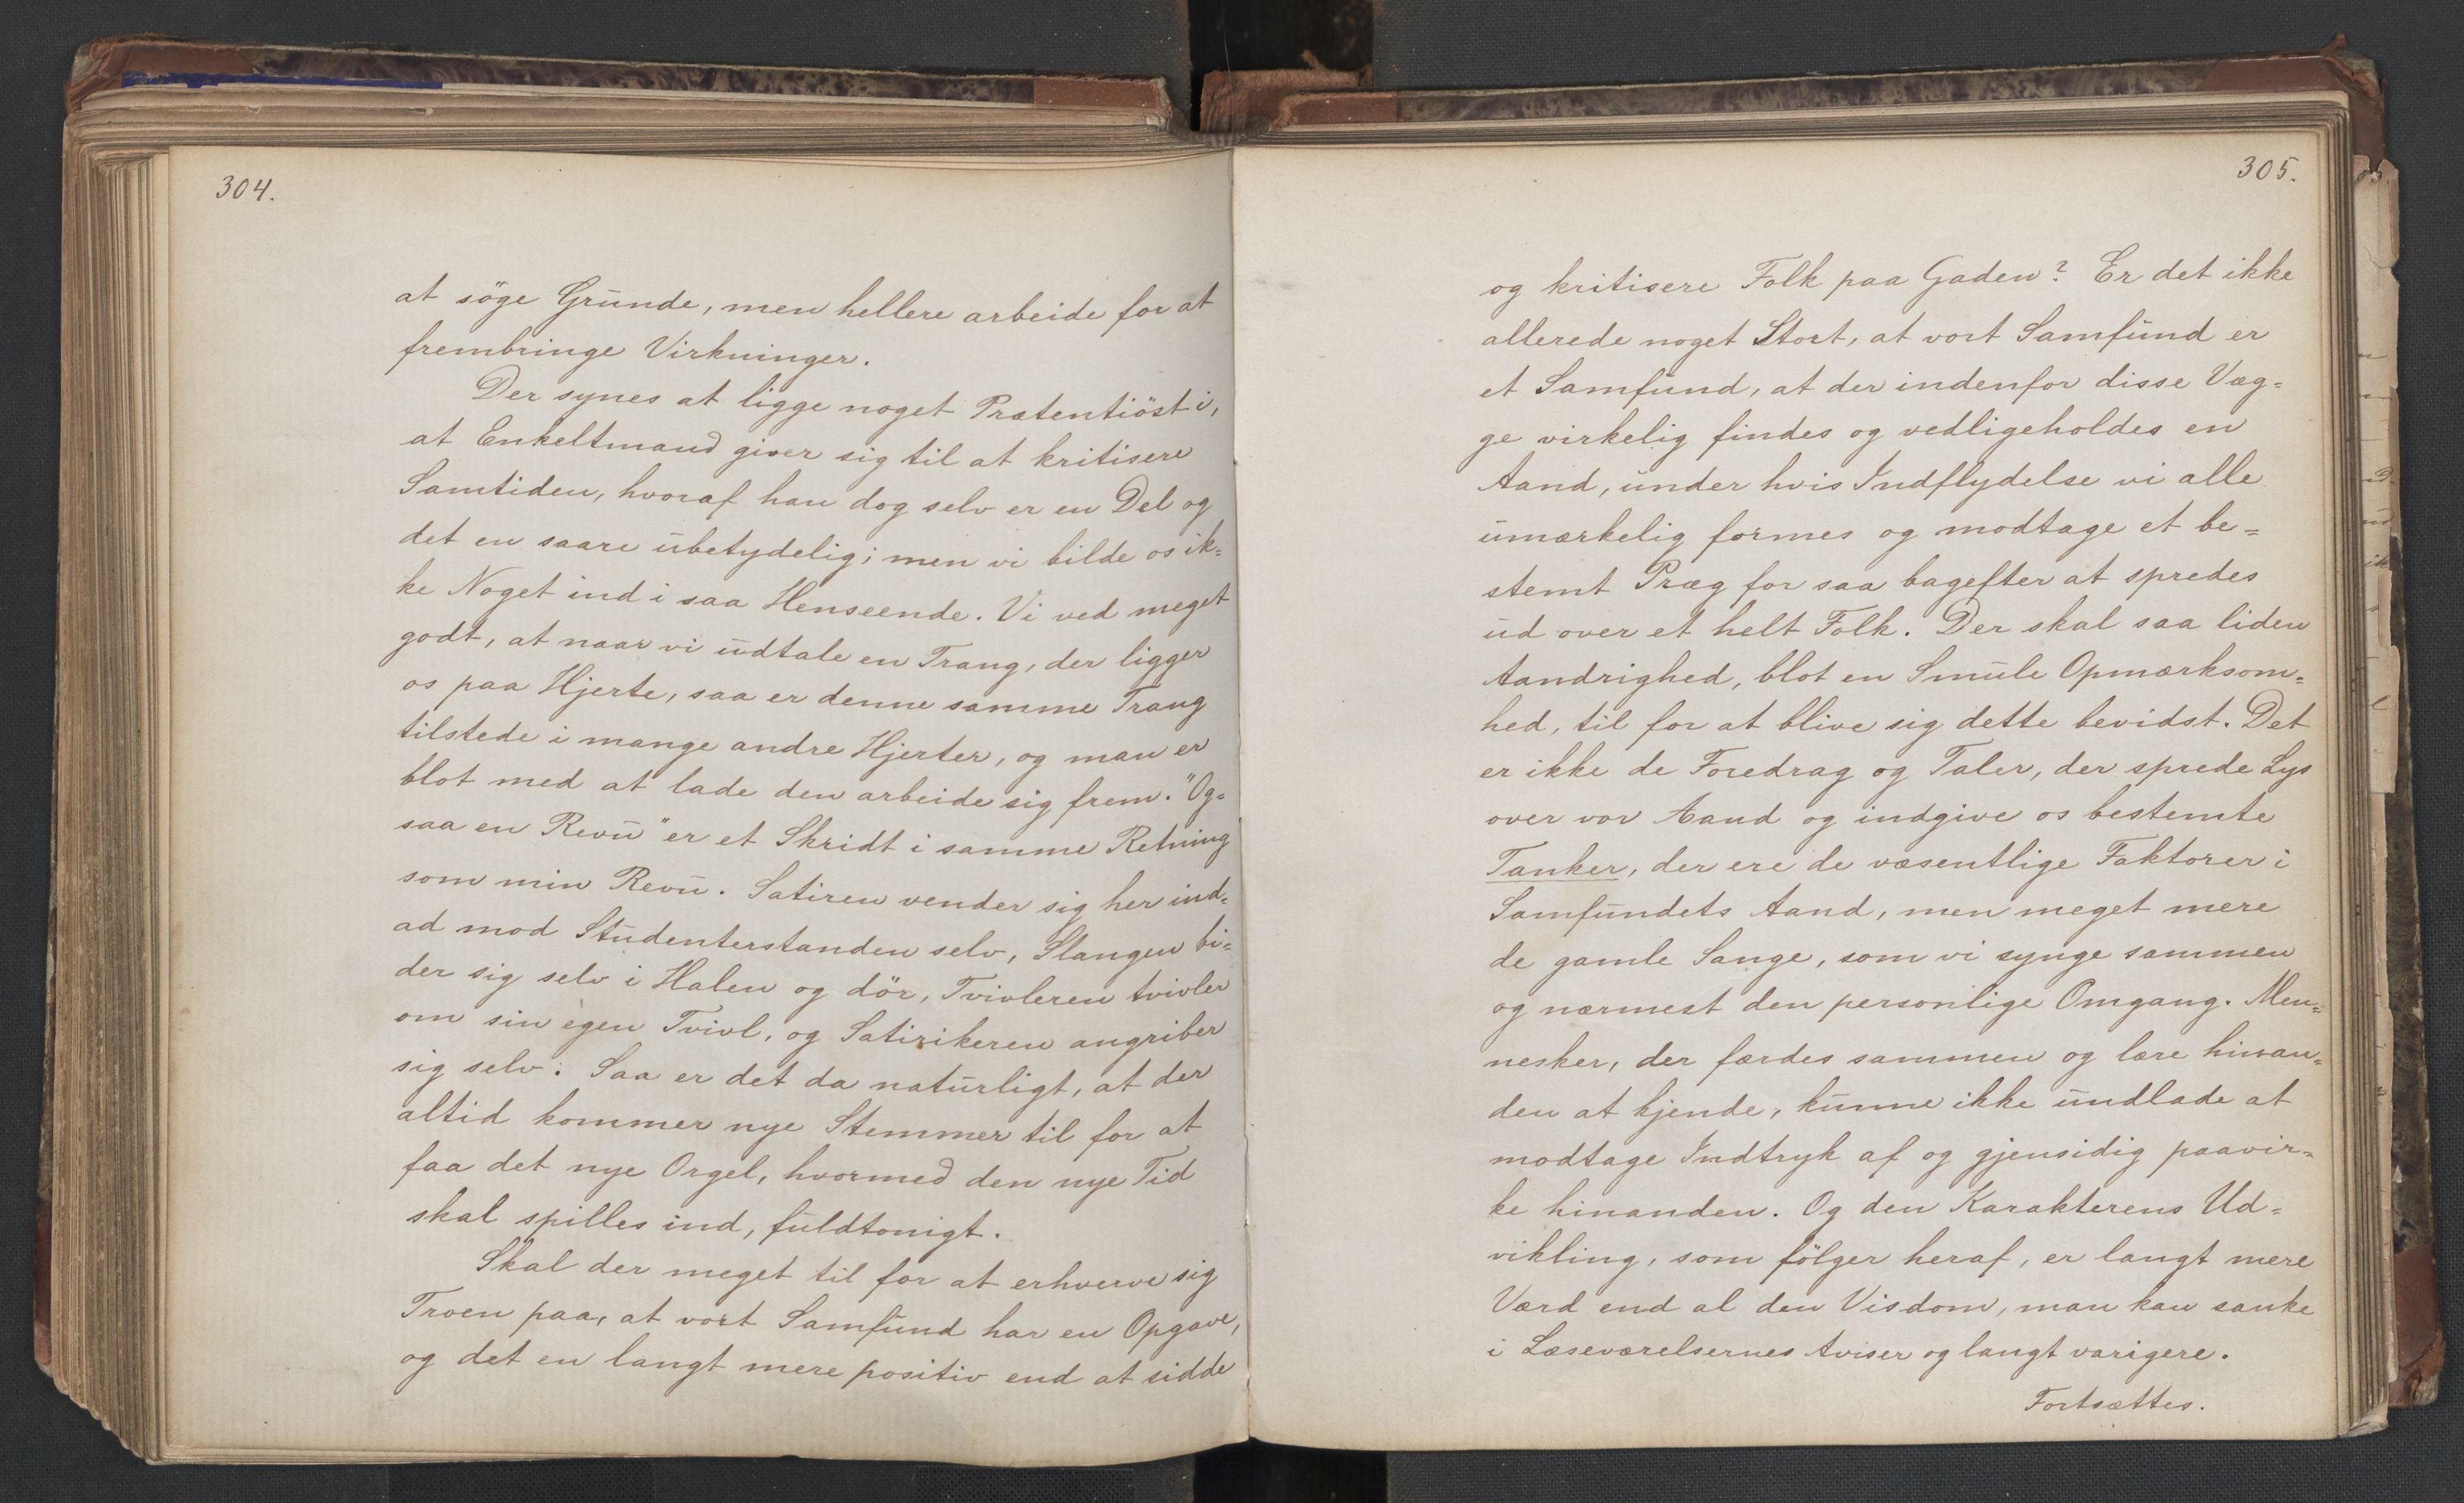 304.
at söge Grunde, men hellere arbeide for at
frembringe Virkninger.
Der synes at ligge noget Prætentiöst i,
at Enkeltmand giver sig til at kritisere
Samtiden, hvoraf han dog selv er en Del og
det en saare ubetydelig; men vi bilde os ik=
ke Noget ind i saa Henseende. Vi ved meget
godt, at naar vi udtale en Trang, der ligger
os paa Hjerte, saa er denne samme Trang
tilstede i mange andre Hjerter, og man er
blot med at lade den arbeide sig frem. "Og=
saa en Revu" er et Skridt i samme Retning
som min Revu. Satiren vender sig her ind=
ad mod Studenterstanden selv, Slangen bi=
der sig selv i Halen og dör, Tvivleren tvivler
om sin egen Tvivl, og Satirikeren angriber
sig selv. Saa er det da naturligt, at der
altid kommer nye Stemmer til for at
faa det nye Orgel, hvormed den nye Tid
skal spilles ind, fuldtonigt.
Skal der meget til for at erhverve sig
Troen paa, at vort Samfund har en Opgave,
og det en langt mere positiv end at sidde
305.
og kritisere Folk paa Gaden? Er det ikke
allerede noget Stort, at vort Samfund er
et Samfund, at der indenfor disse Væg=
ge virkelig findes og vedligeholdes en
Aand, under hvis Indflydelse vi alle
umærkelig formes og modtage et be=
stemt Præg for saa bagefter at spredes
ud over et helt Folk. Der skal saa liden
Aandrighed, blot en Smule Opmærksom=
hed, til for at blive sig dette bevidst. Det
er ikke de Foredrag og Taler, der sprede Lys
over vor Aand og indgive os bestemte
Tanker, der ere de væsentlige Faktorer i
Samfundets Aand, men meget mere
de gamle Sange, som vi synge sammen
og nærmest den personlige Omgang. Men=
nesker, der færdes sammen og lære hinan=
den at kjende, kunne ikke undlade at
modtage Indtryk af og gjensidig paavir=
ke hinanden. Og den Karakterens Ud=
vikling, som fölger heraf, er langt mere
Værd end al den Visdom, man kan sanke
i Læseværelsernes Aviser og langt varigere.
Fortsættes.